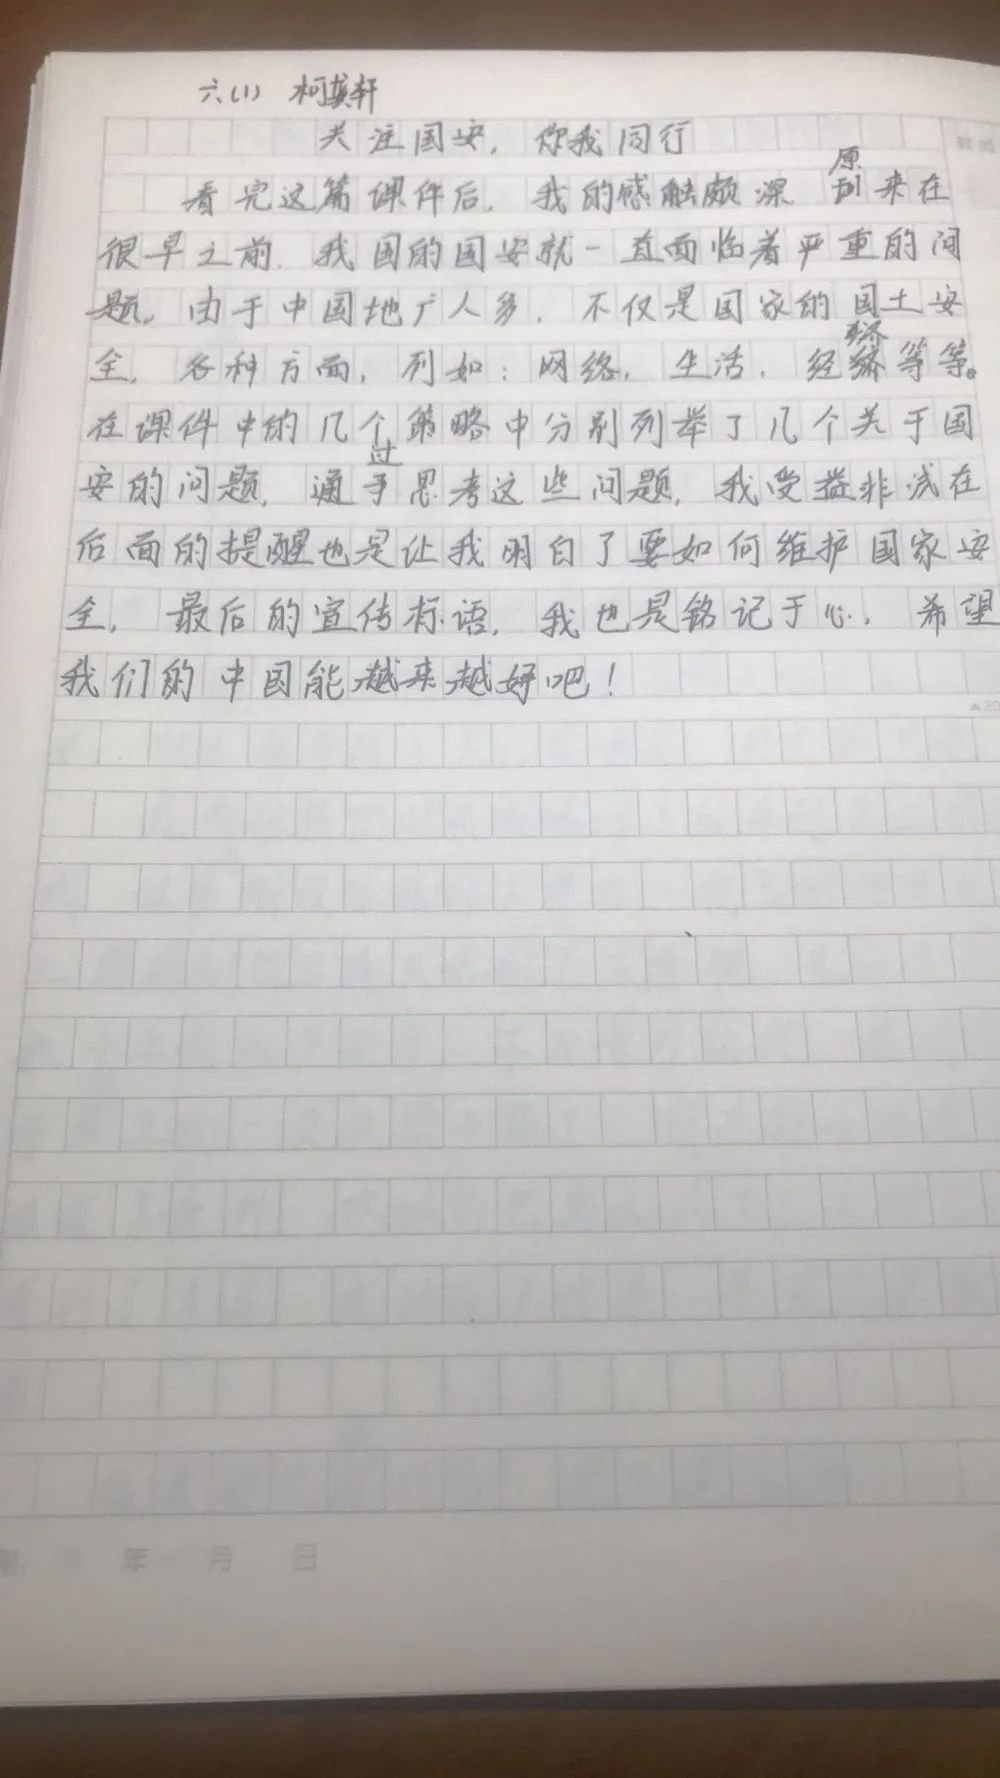 六(1) 柯
关注国安，你我同行
看完这篇课件后，我的感触颇深，原来在
很早之前，我国的国安就一直面临着严重的问
题。由于中国地广人多，不仅是国家的国土安
全，各种方面，列如：网络，生活，经济等等。
在课件中的几个策略中分别列举了几个关于国
安的问题，通过思考这些问题，我受益非浅在
后面的提醒也是让我明白了要如何维护国家安
全，最后的宣传标语，我也是铭记于心，希望
我们的中国能越来越好吧！
▲20
年 月 日